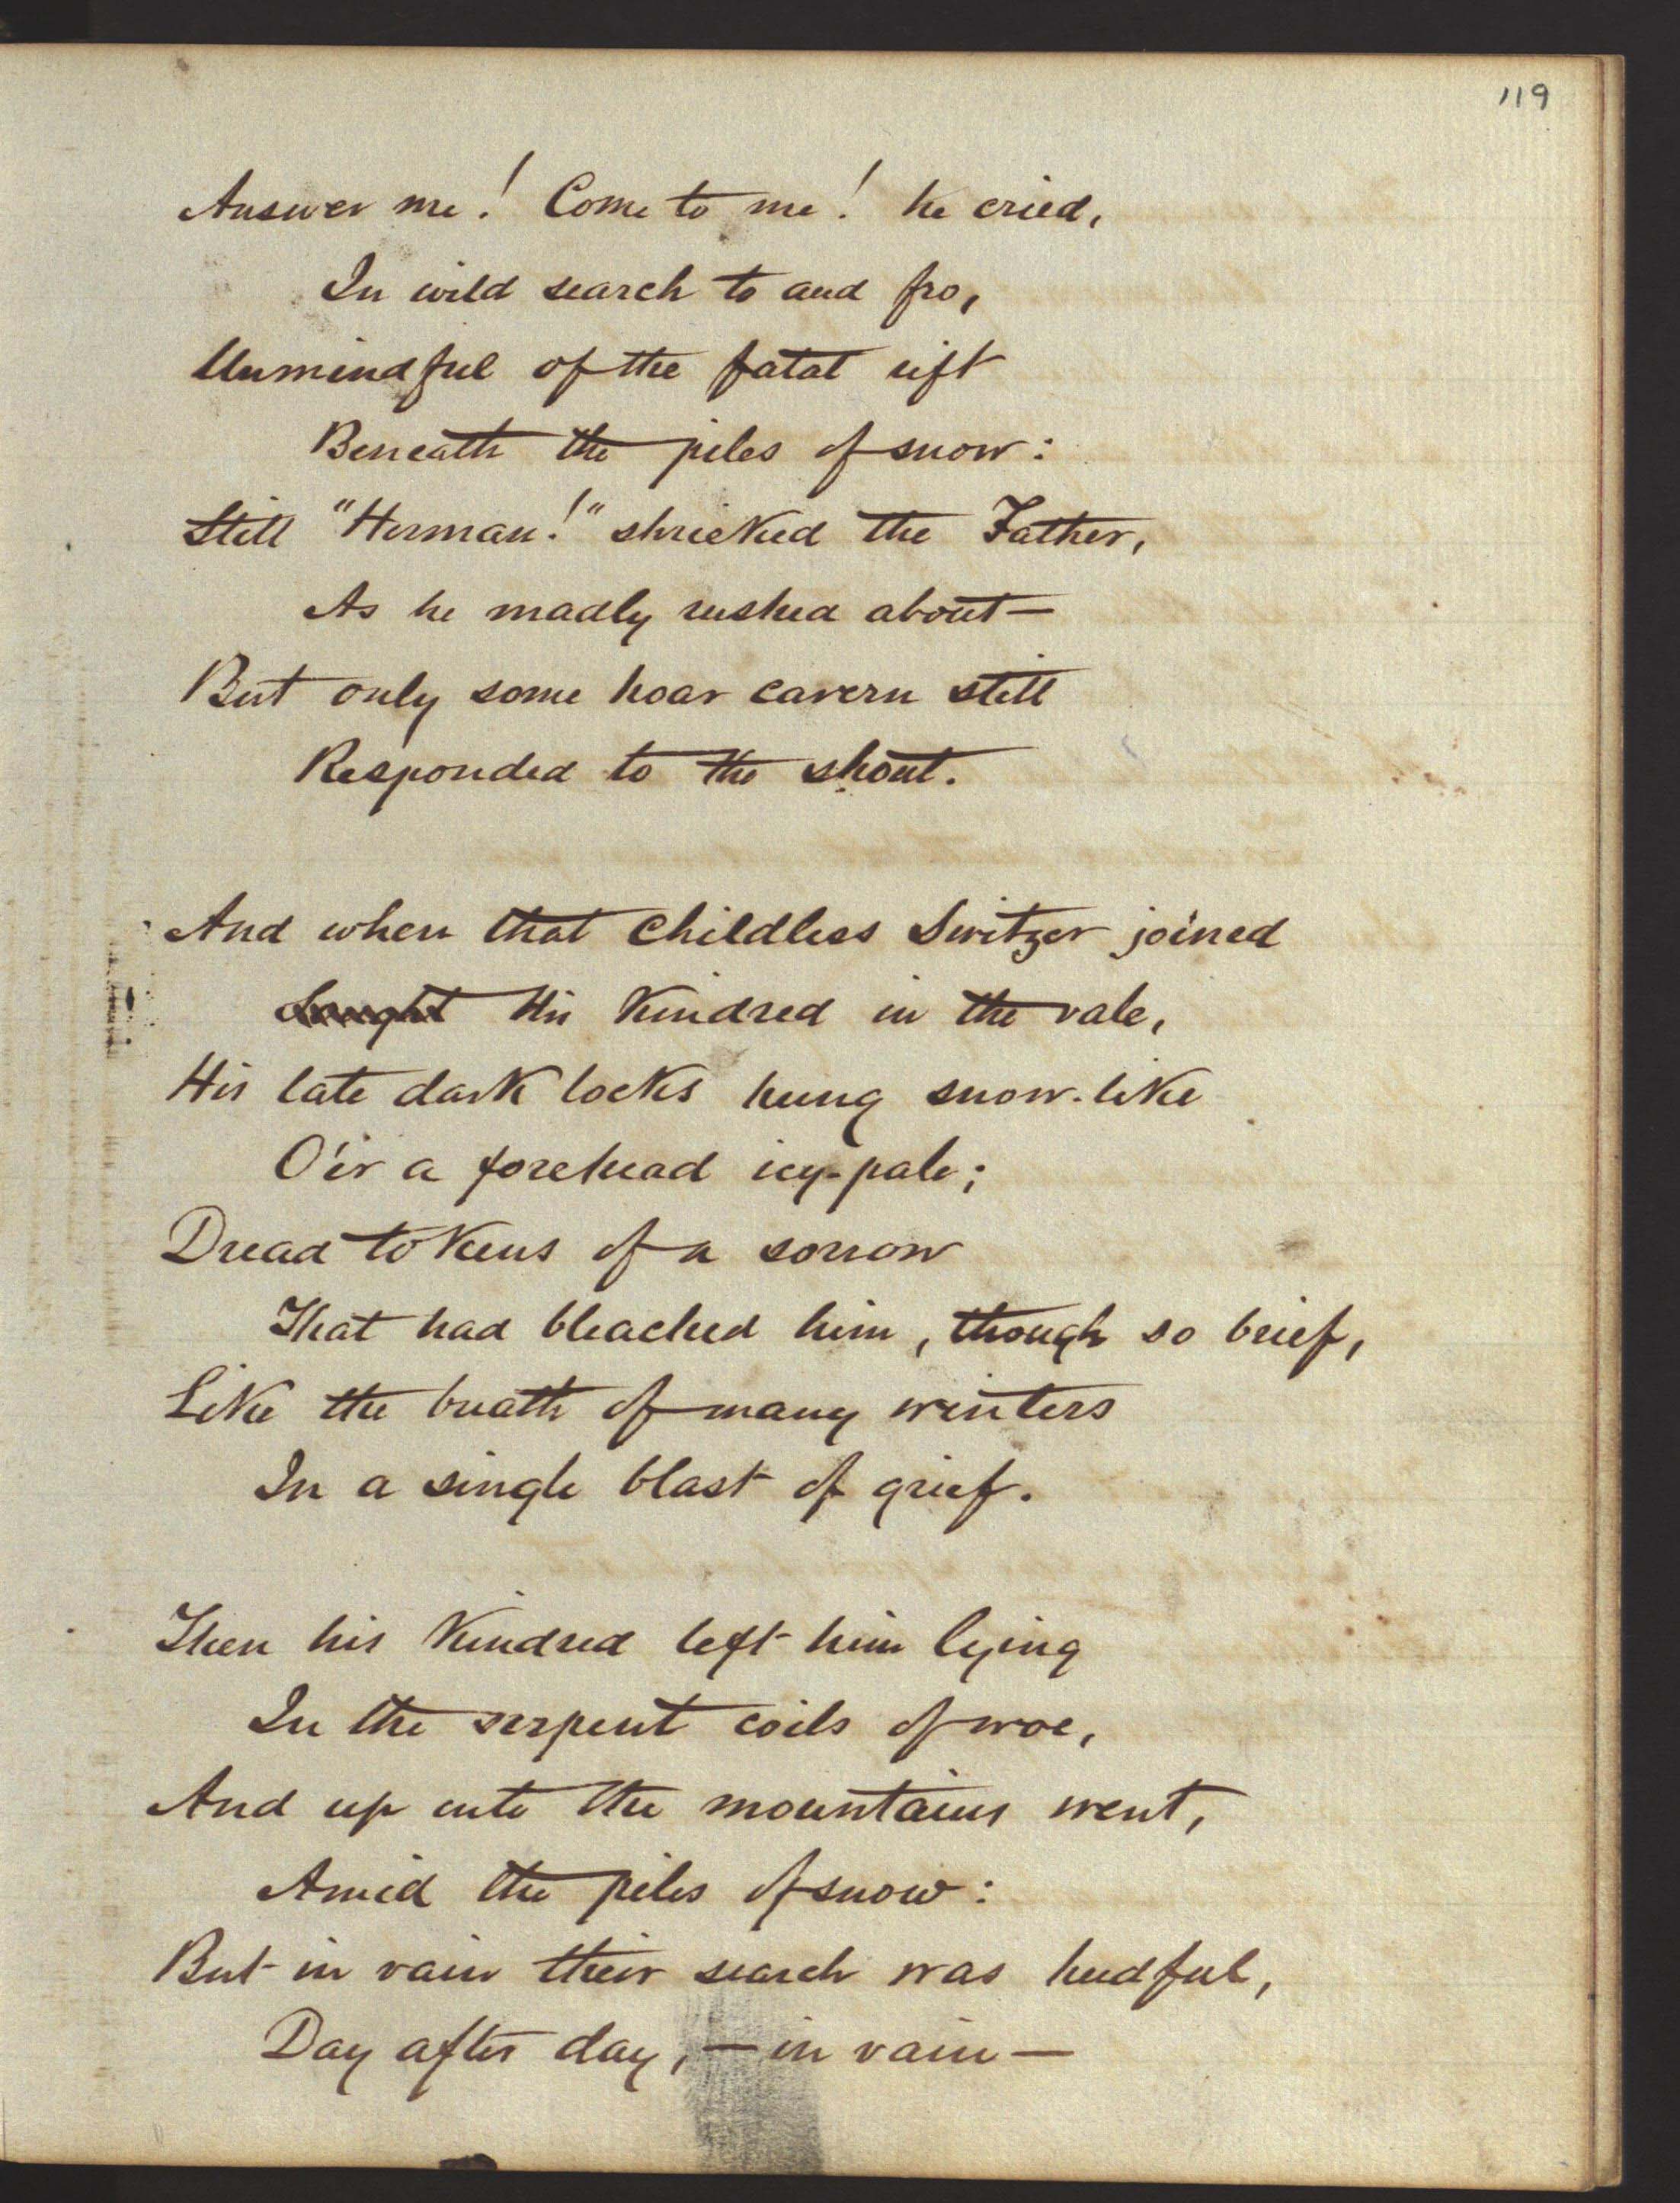 119
Answer me! Come to me! he cried,
In wild search to and fro,
Unmindful of the fatal rift
Beneath the piles of snow:
Still "Herman!" shrieked the Father,
As he madly rushed about—
But only some hoar cavern still
Responded to the shout.
And when that childless Switzer joined
Sought His Kindred in the vale,
His late dark locks hung snow-like
O'er a forehead icy-pale;
Dread tokens of a sorrow
That had bleached him, though so brief,
Like the breath of many winters
In a single blast of grief.
Then his Kindred left him lying
In the serpent coils of woe,
And up into the mountains went,
Amid the piles of snow:
But in vain their search was heedful,
Day after day, — in vain —